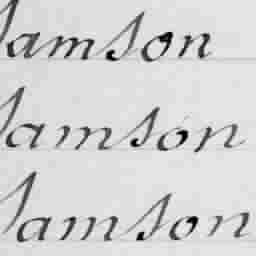 Samson
Samson
Samson